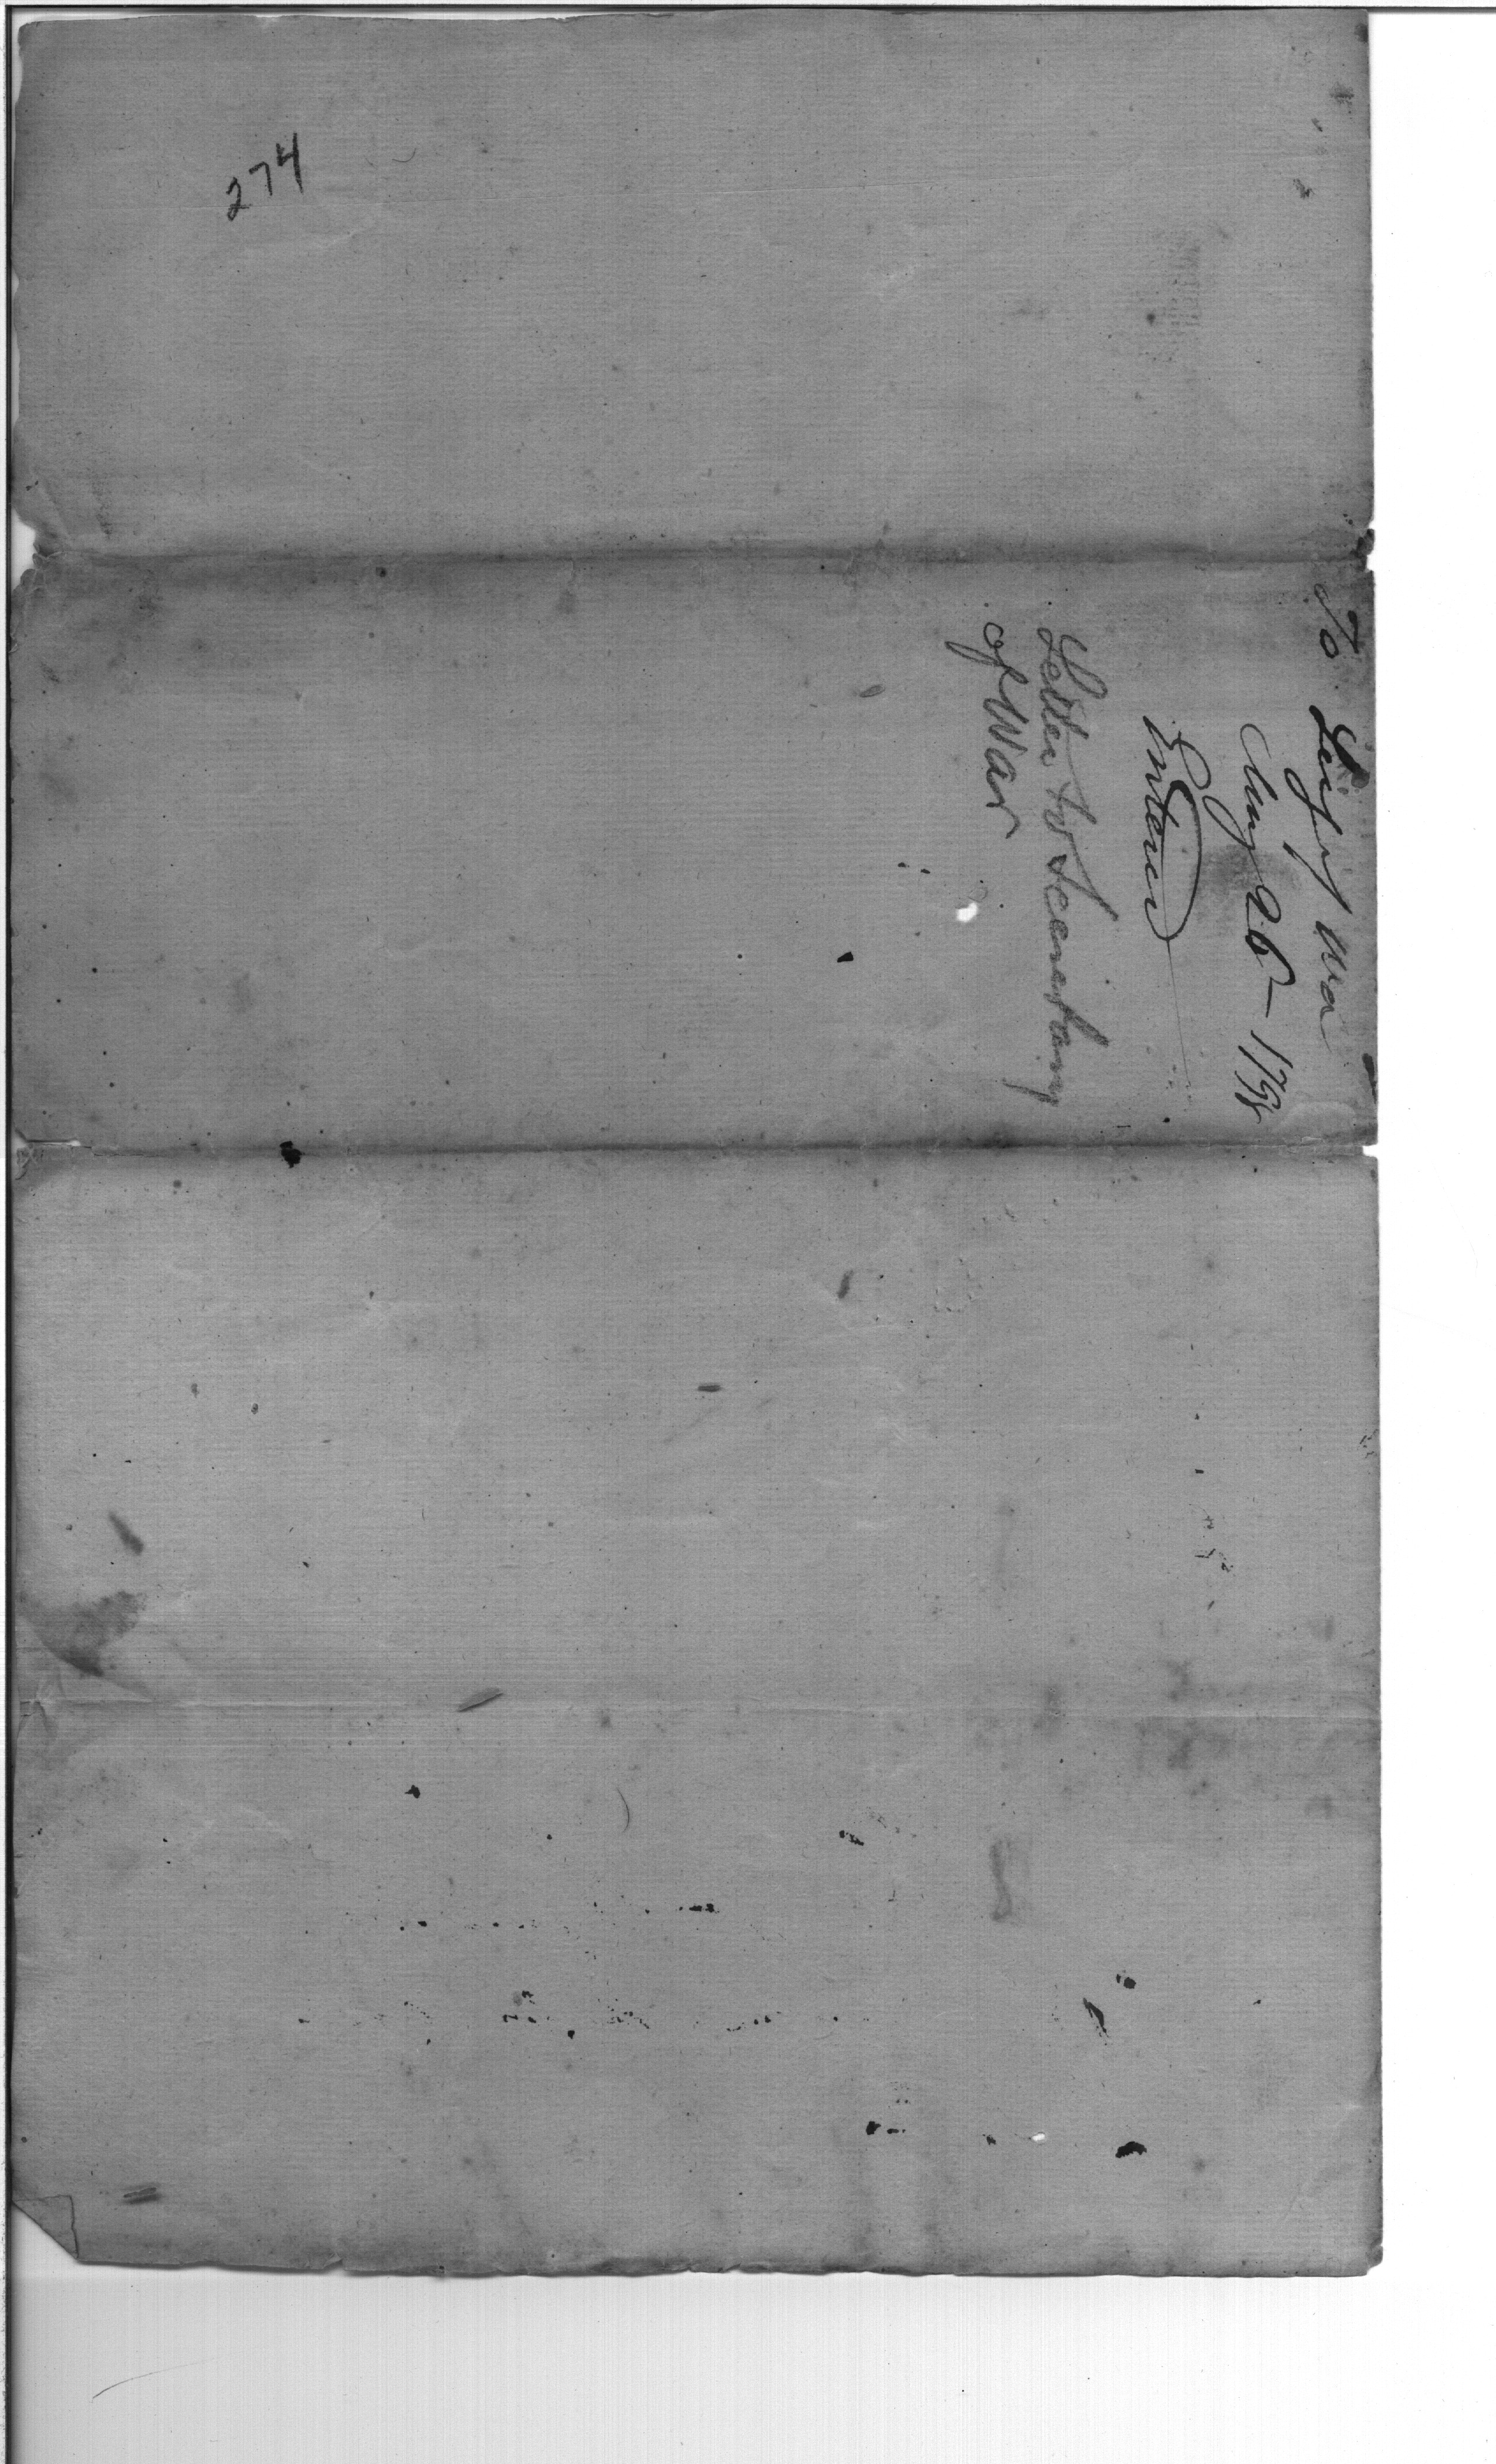 274
To Secy of War
Aug 26 - 1798
Entered
Letter to Secretary
of War